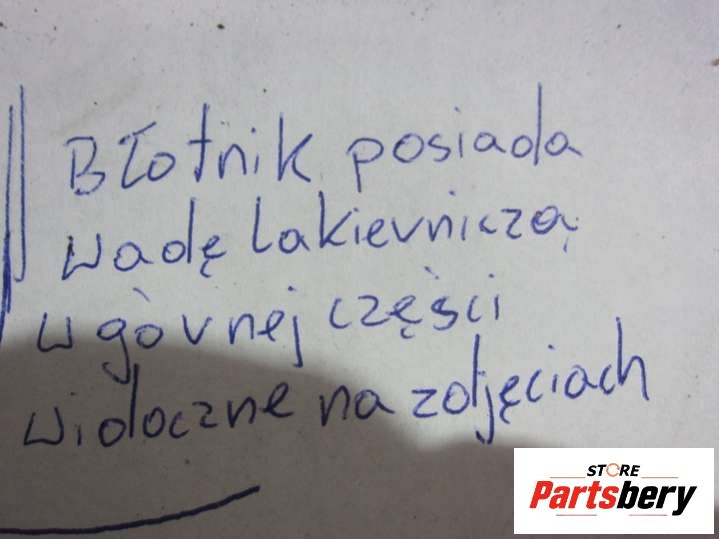 Błotnik posiada
wadę lakierniczą
w górnej części
widoczne na zdjęciach
STORE
Partsbery